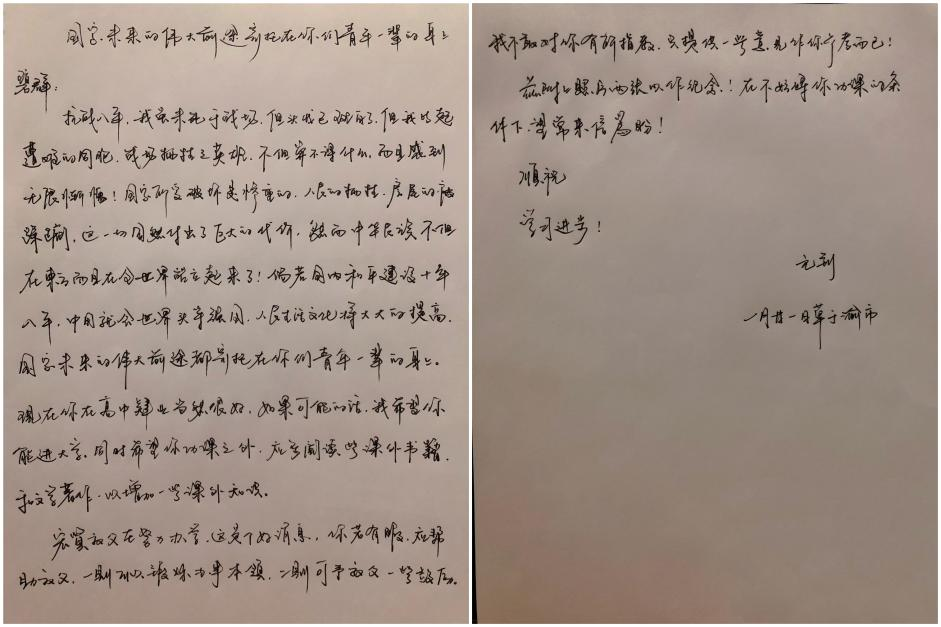 国家未来的伟大前途寄托在你们青年一辈的身上
碧群:
抗战八年,我虽未死于战场,但头发已斑白了,但我比起
遭难的同胞,战场牺牲之英雄,不但算不得什么,而且感到
无限惭愧!国家所受破坏是惨重的,人民的牺牲,房屋的
蹂躏,这一切固然付出了巨大的代价,然而中华民族不但
在东方而且在全世界站立起来了!倘若国内和平建设十年
八年,中国就会世界头等强国,人民生活文化将大大的提高,
国家未来的伟大前途都寄托在你们青年一辈的身上。
现在你在高中肄业当然很好,如果可能的话,我希望你
能进大学。同时希望你功课之外,应多阅读些课外书籍,
和文学著作,以增加一些课外知识。
叔父在努力办学,这是个好消息,你若有暇,应帮
助叔父,一则可以锻炼办事本领,二则可予叔父一些鼓励。
我不敢对你有所指教,只提供一些意见作你参考而已!
兹附上照片两张以作纪念!在不妨碍你功课的条
件下,望常来信为盼!
顺祝
学习进步!
元
一月廿一日草于渝市